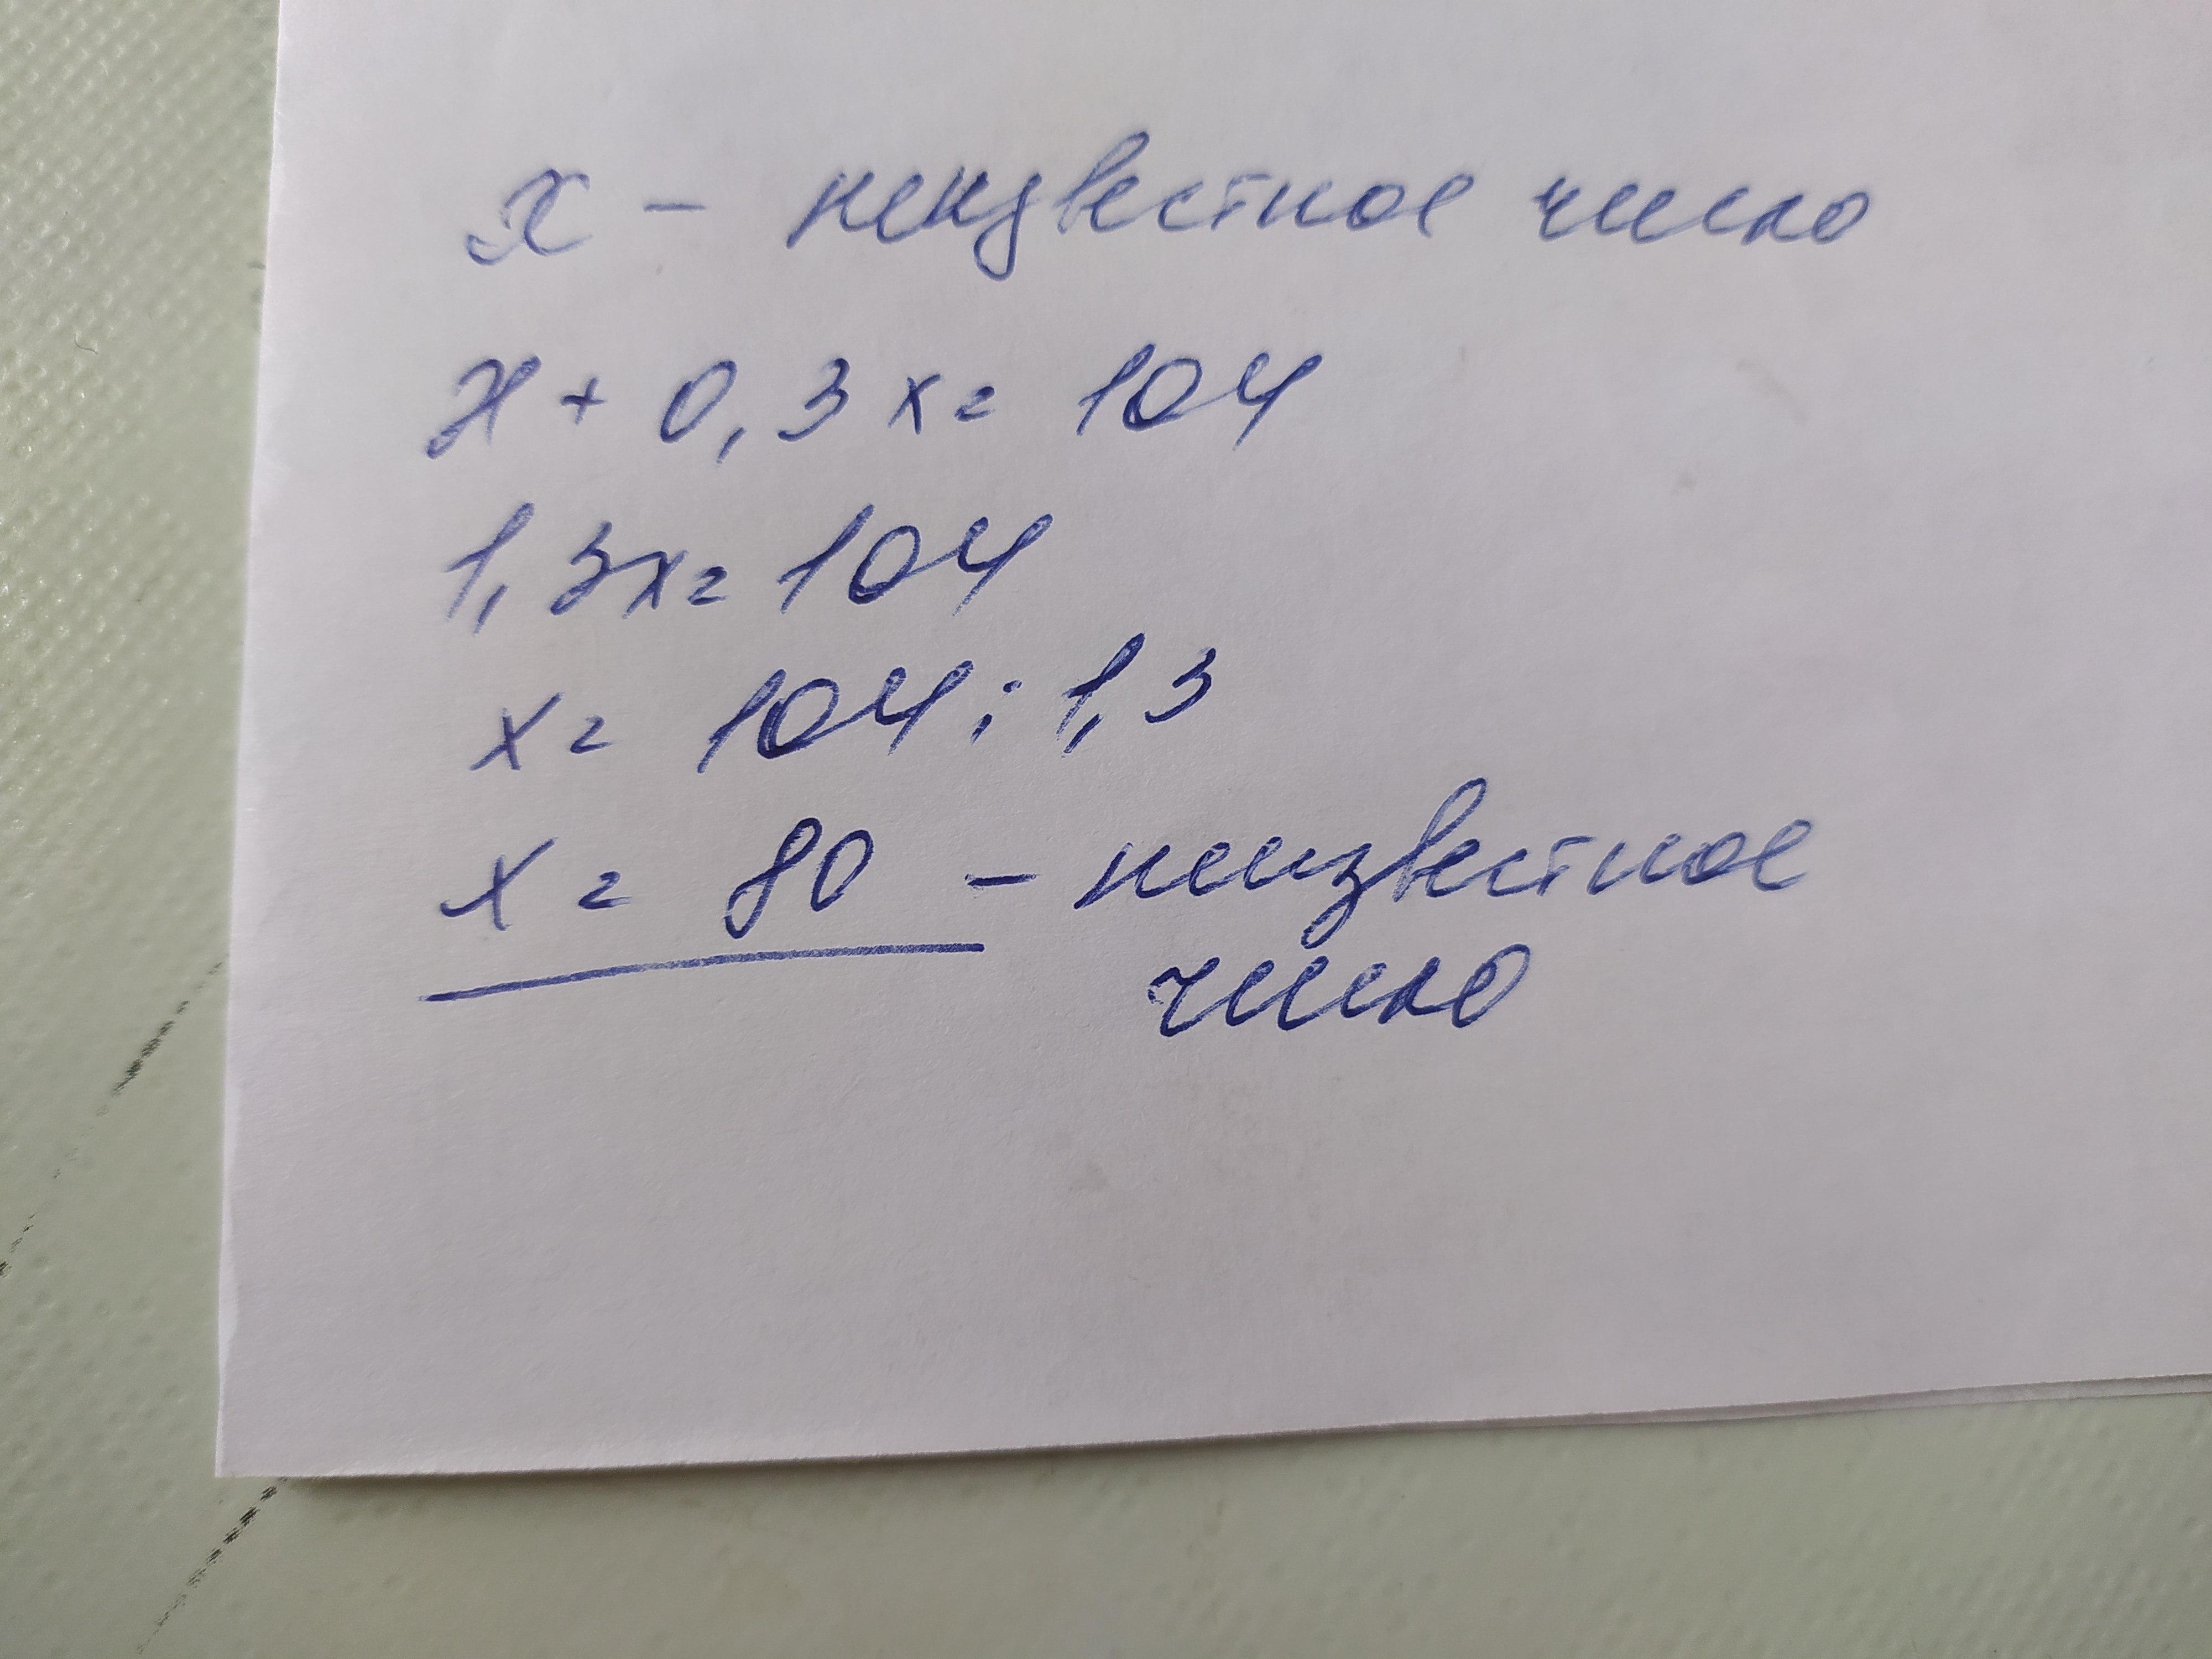 x - неизвестное число
x + 0,3x = 104
1,3x = 104
x = 104 : 1,3
x = 80 - неизвестное
число